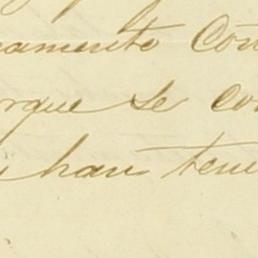 amento Con
rque se co
han ten